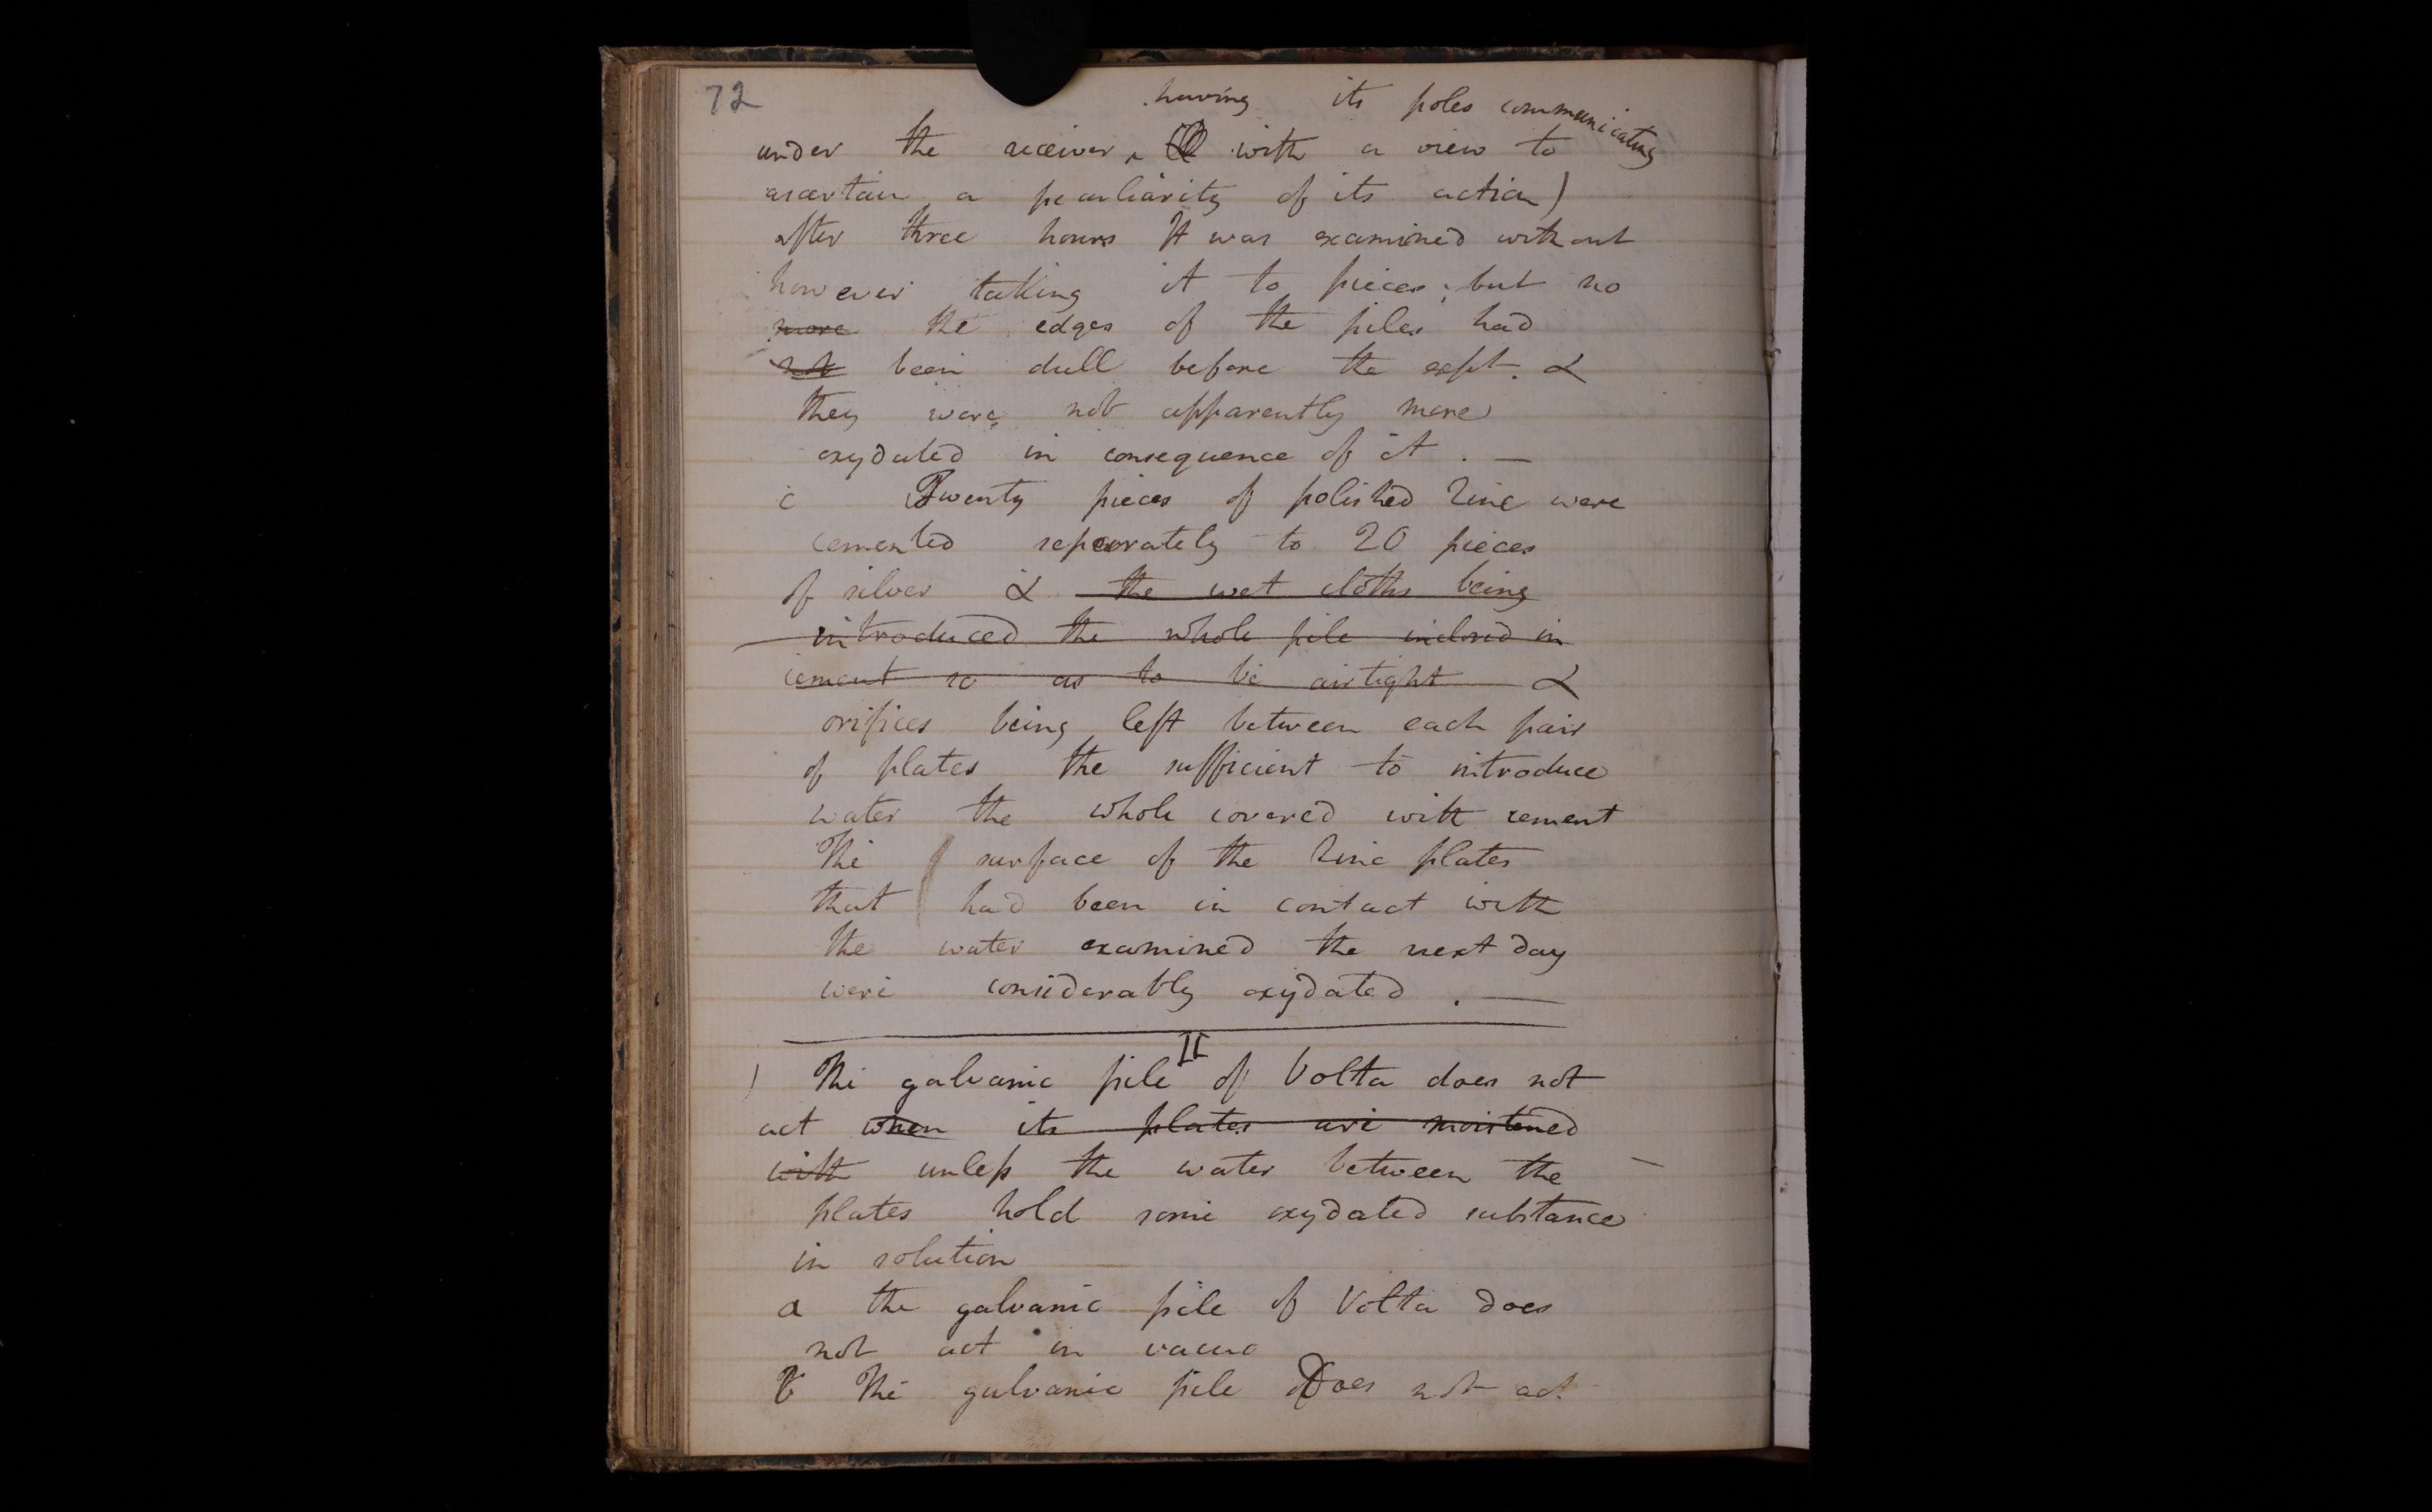 72
having its poles communicating
under the receiver, with a view to
ascertain a peculiarity of its action)
after three hours It was examined without
however taking it to pieces; but no
more the edges of the piles had
not been dull before the expt. &
they were not apparently more
oxydated in consequence of it . —
c Twenty pieces of polished Zinc were
cemented separately to 20 pieces
of silver & the wet cloths being
introduced the whole pile inclosed in
cement so as to be airtight &
orifices being left between each pair
of plates the sufficient to introduce
water the whole covered with cement
The surface of the Zinc plates
that had been in contact with
the water examined the next day
were considerably oxydated . —
II
) The galvanic pile of Volta does not
act when its plates are moistened
with unless the water between the —
plates hold some oxydated substance
in solution
a the galvanic pile of Volta does
not act in vacuo
b The galvanic pile Does not act